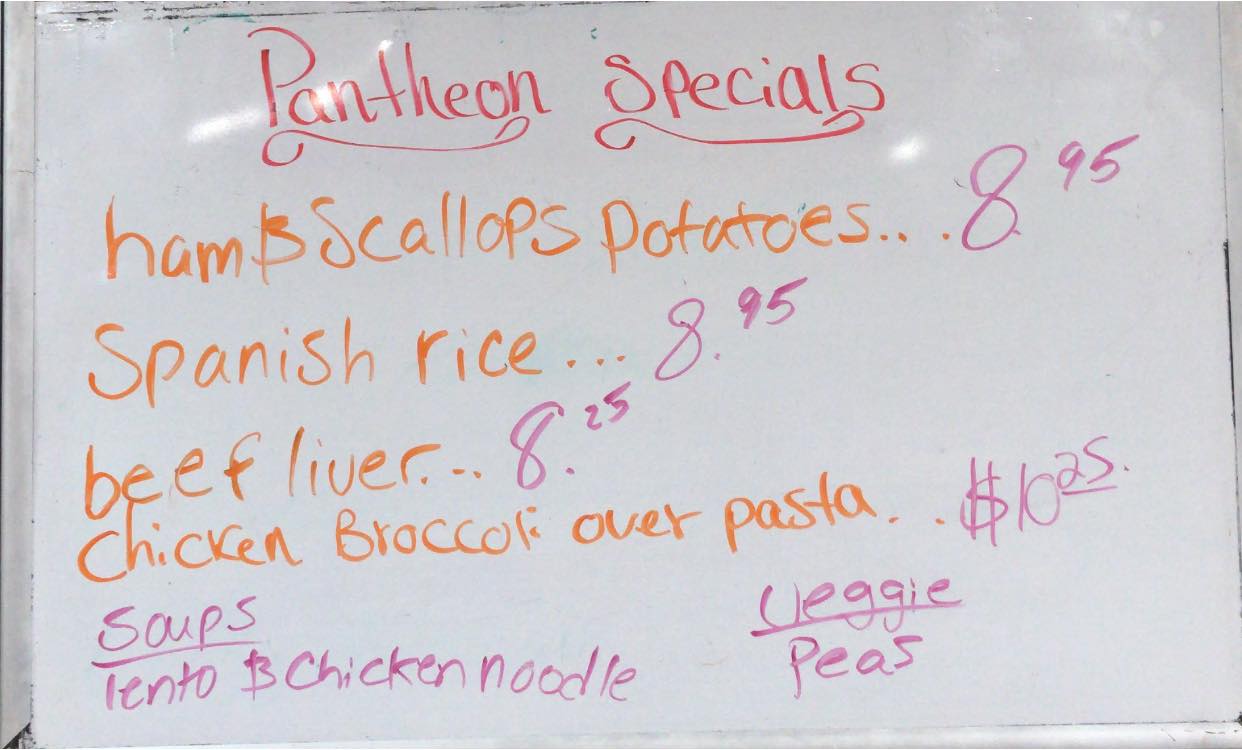 Pantheon Specials
ham & Scallops Potatoes... .8.95
Spanish rice... 8.95
beef liver... 8.25
Chicken Broccoli over pasta. . . $10 25.
Soups Veggie
lento & Chicken noodle Peas